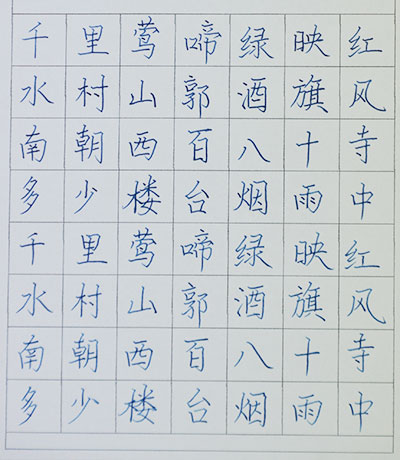 千里莺啼绿映红
水村山郭酒旗风
南朝西百八十寺
多少楼台烟雨中
千里莺啼绿映红
水村山郭酒旗风
南朝西百八十寺
多少楼台烟雨中